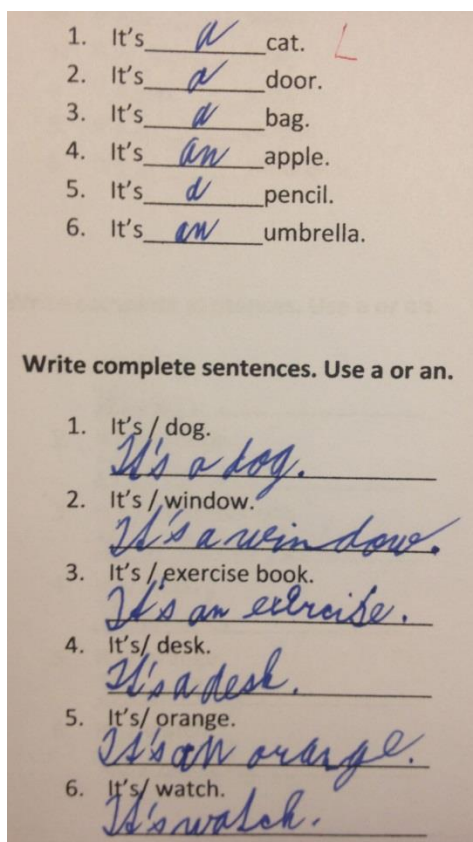 1. It's a cat. L
2. It's a door.
3. It's a bag.
4. It's an apple.
5. It's a pencil.
6. It's an umbrella.
Write complete sentences. Use a or an.
1. It's / dog.
It's a dog.
2. It's / window.
It's a window.
3. It's / exercise book.
It's an exercise.
4. It's/ desk.
It's a desk.
5. It's/ orange.
It's an orange.
6. It's/ watch.
It's watch.